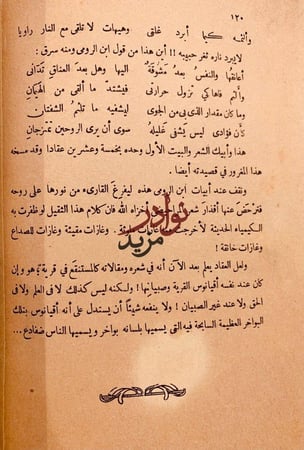 ١٢٠
وألثمه كيما أبرد غلتى وهيهات لا تلقى مع النار راويا
لا يبرد نار ثغر حبيبه !! أين هذا من قول ابن الرومى ومنه سرق :
أعانقها والنفس بعد مشوقة إليها وهل بعد العناق تدانى
وألثم فاها كى تزول حرارتى فيشتد ما ألقى من الهيمان
وما كان مقدار الذى بى من الجوى ليشفيه ما تلثم الشفتان
كأن فؤادى ليس يشفى غليله سوى أن يرى الروحين تمتزجان
هذا وأبيك الشعر والبيت الأول وحده بخمسة وعشرين عقادا وقد مسخه
هذا المغرور فى قصيدته أيضا .
ونقف عند أبيات ابن الرومى هذه ليفرغ القارىء من نورها على روحه
فترحض عنها أقذار شعر أخزاه الله فان كلام هذا الثقيل لو ظفرت به
الكيمياء الحديثة لأخرجت وغازات مقيئة وغازات للصداع
وغازات خانقة !
ولعل العقاد يعلم بعد الآن أنه فى شعره ومقالاته كالمستنقع فى قرية ؛ هو وإن
كان عند نفسه أقيانوس القرية وصبيانها ! ولكنه ليس كذلك لا فى العلم ولا فى
الحق ولا عند غير الصبيان ! ولا ينفعه شيئاً أن يستدل على أنه أقيانوس بتلك
البواخر العظيمة السابحة فيه التى يسميها بلسانه بواخر ويسميها الناس ضفادع ...
نوادر
مريد